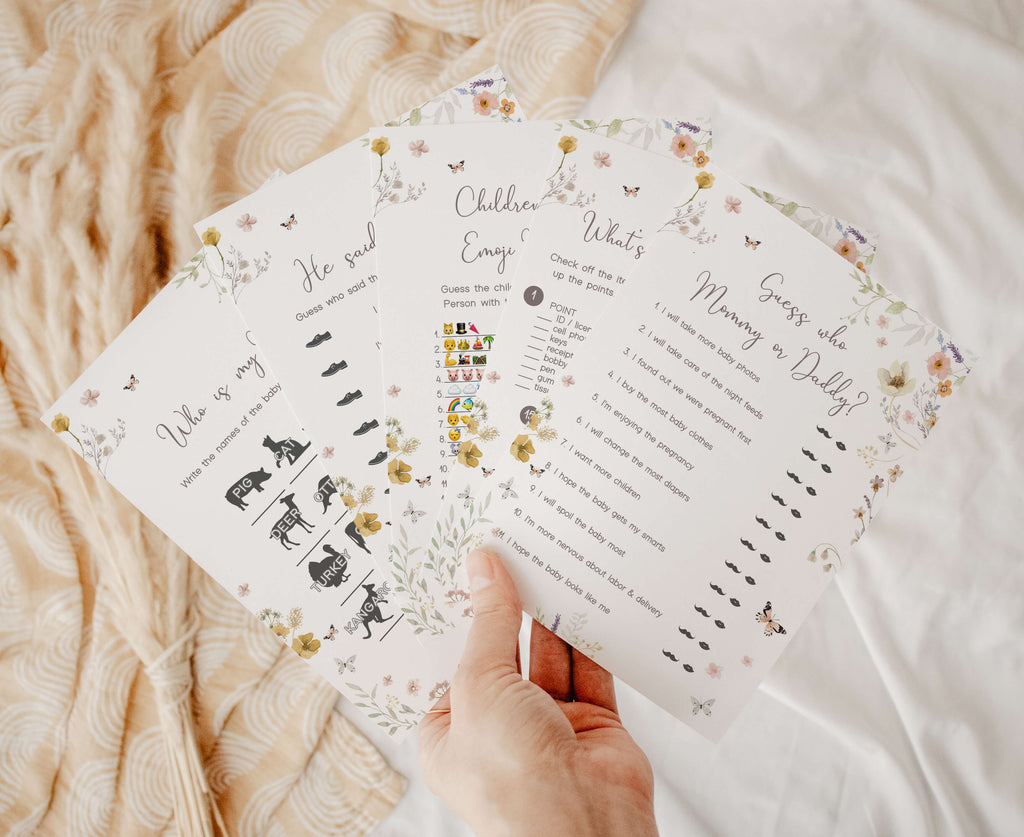 Who is my
Write the names of the baby
PIG
CAT
DEER
OTT
TURKEY
KANGARO
He said
Guess who said th
Children
Emoji
Guess the chil
Person with
1.
2.
3.
4.
5.
6.
7.
8.
9.
10.
What's
Check off the it
up the points
1
POINT
ID / licen
cell pho
keys
receipt
bobby
pen
gum
tiss
15
Guess who
Mommy or Daddy?
1. I will take more baby photos
2. I will take care of the night feeds
3. I found out we were pregnant first
4. I buy the most baby clothes
5. I'm enjoying the pregnancy
6. I will change the most diapers
7. I want more children
8. I hope the baby gets my smarts
9. I will spoil the baby most
10. I'm more nervous about labor & delivery
11. I hope the baby looks like me